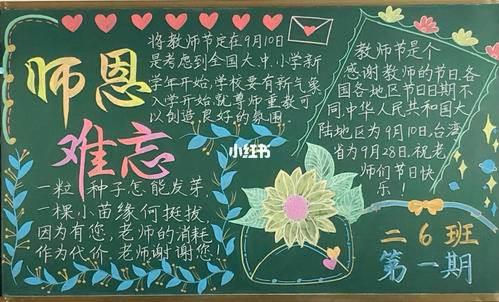 师恩
难忘
将教师节定在9月10日
是考虑到全国大中、小学新
学年开始,学校要有新气象
入学开始就尊师重教可
以创造良好的氛围
一粒种子怎能发芽,
一棵小苗缘何挺拔,
因为有您,老师的消耗
作为代价,老师谢谢您!
小红书
教师节是个
感谢教师的节日,各
国各地区节日日期不
同,中华人民共和国大
陆地区为9月10日,台湾
省为9月28日,祝老
师们节日快
乐!
二6班
第一期